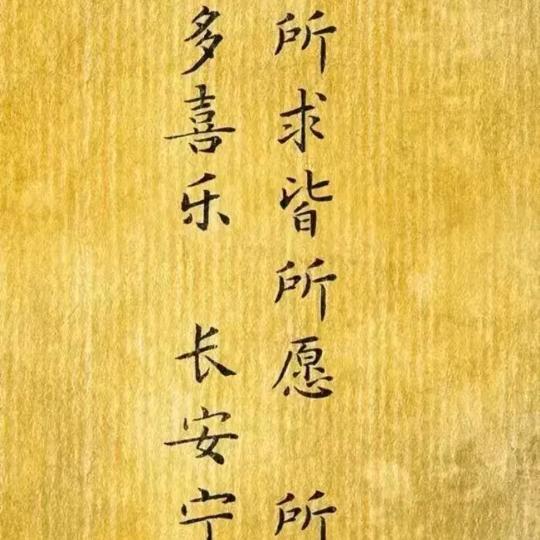 所求皆所愿 所
多喜乐 长安宁